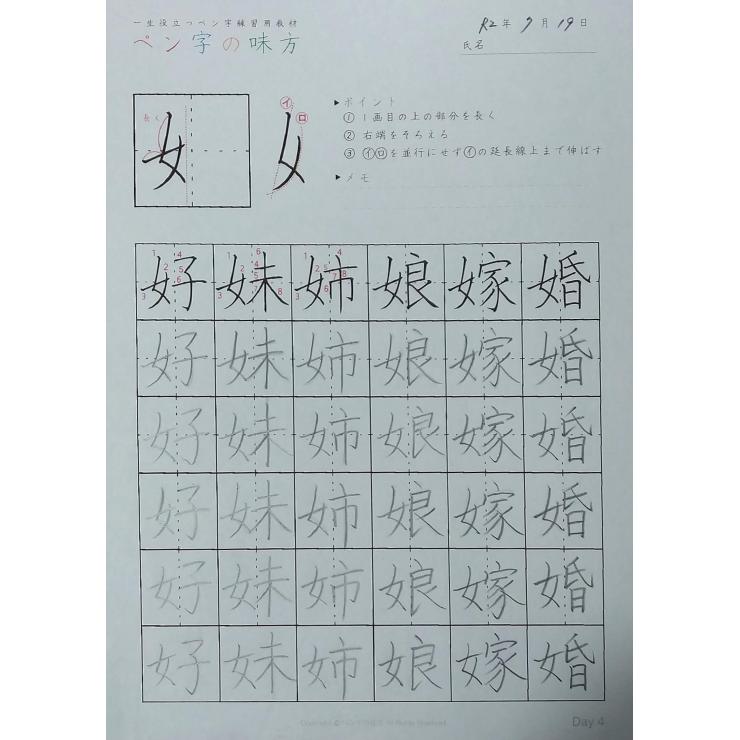 一生役立つペン字練習用教材
ペン字の味方
R2年7月19日
氏名
長く
女
イ
ロ
▶ポイント
① 1画目の上の部分を長く
② 右端をそろえる
③ イロを並行にせずイの延長線上まで伸ばす
▶メモ
好 妹 姉 娘 嫁 婚
好 妹 姉 娘 嫁 婚
好 妹 姉 娘 嫁 婚
好 妹 姉 娘 嫁 婚
好 妹 姉 娘 嫁 婚
好 妹 姉 娘 嫁 婚
Copyright © ペン字の味方 All Rights Reserved.
Day 4